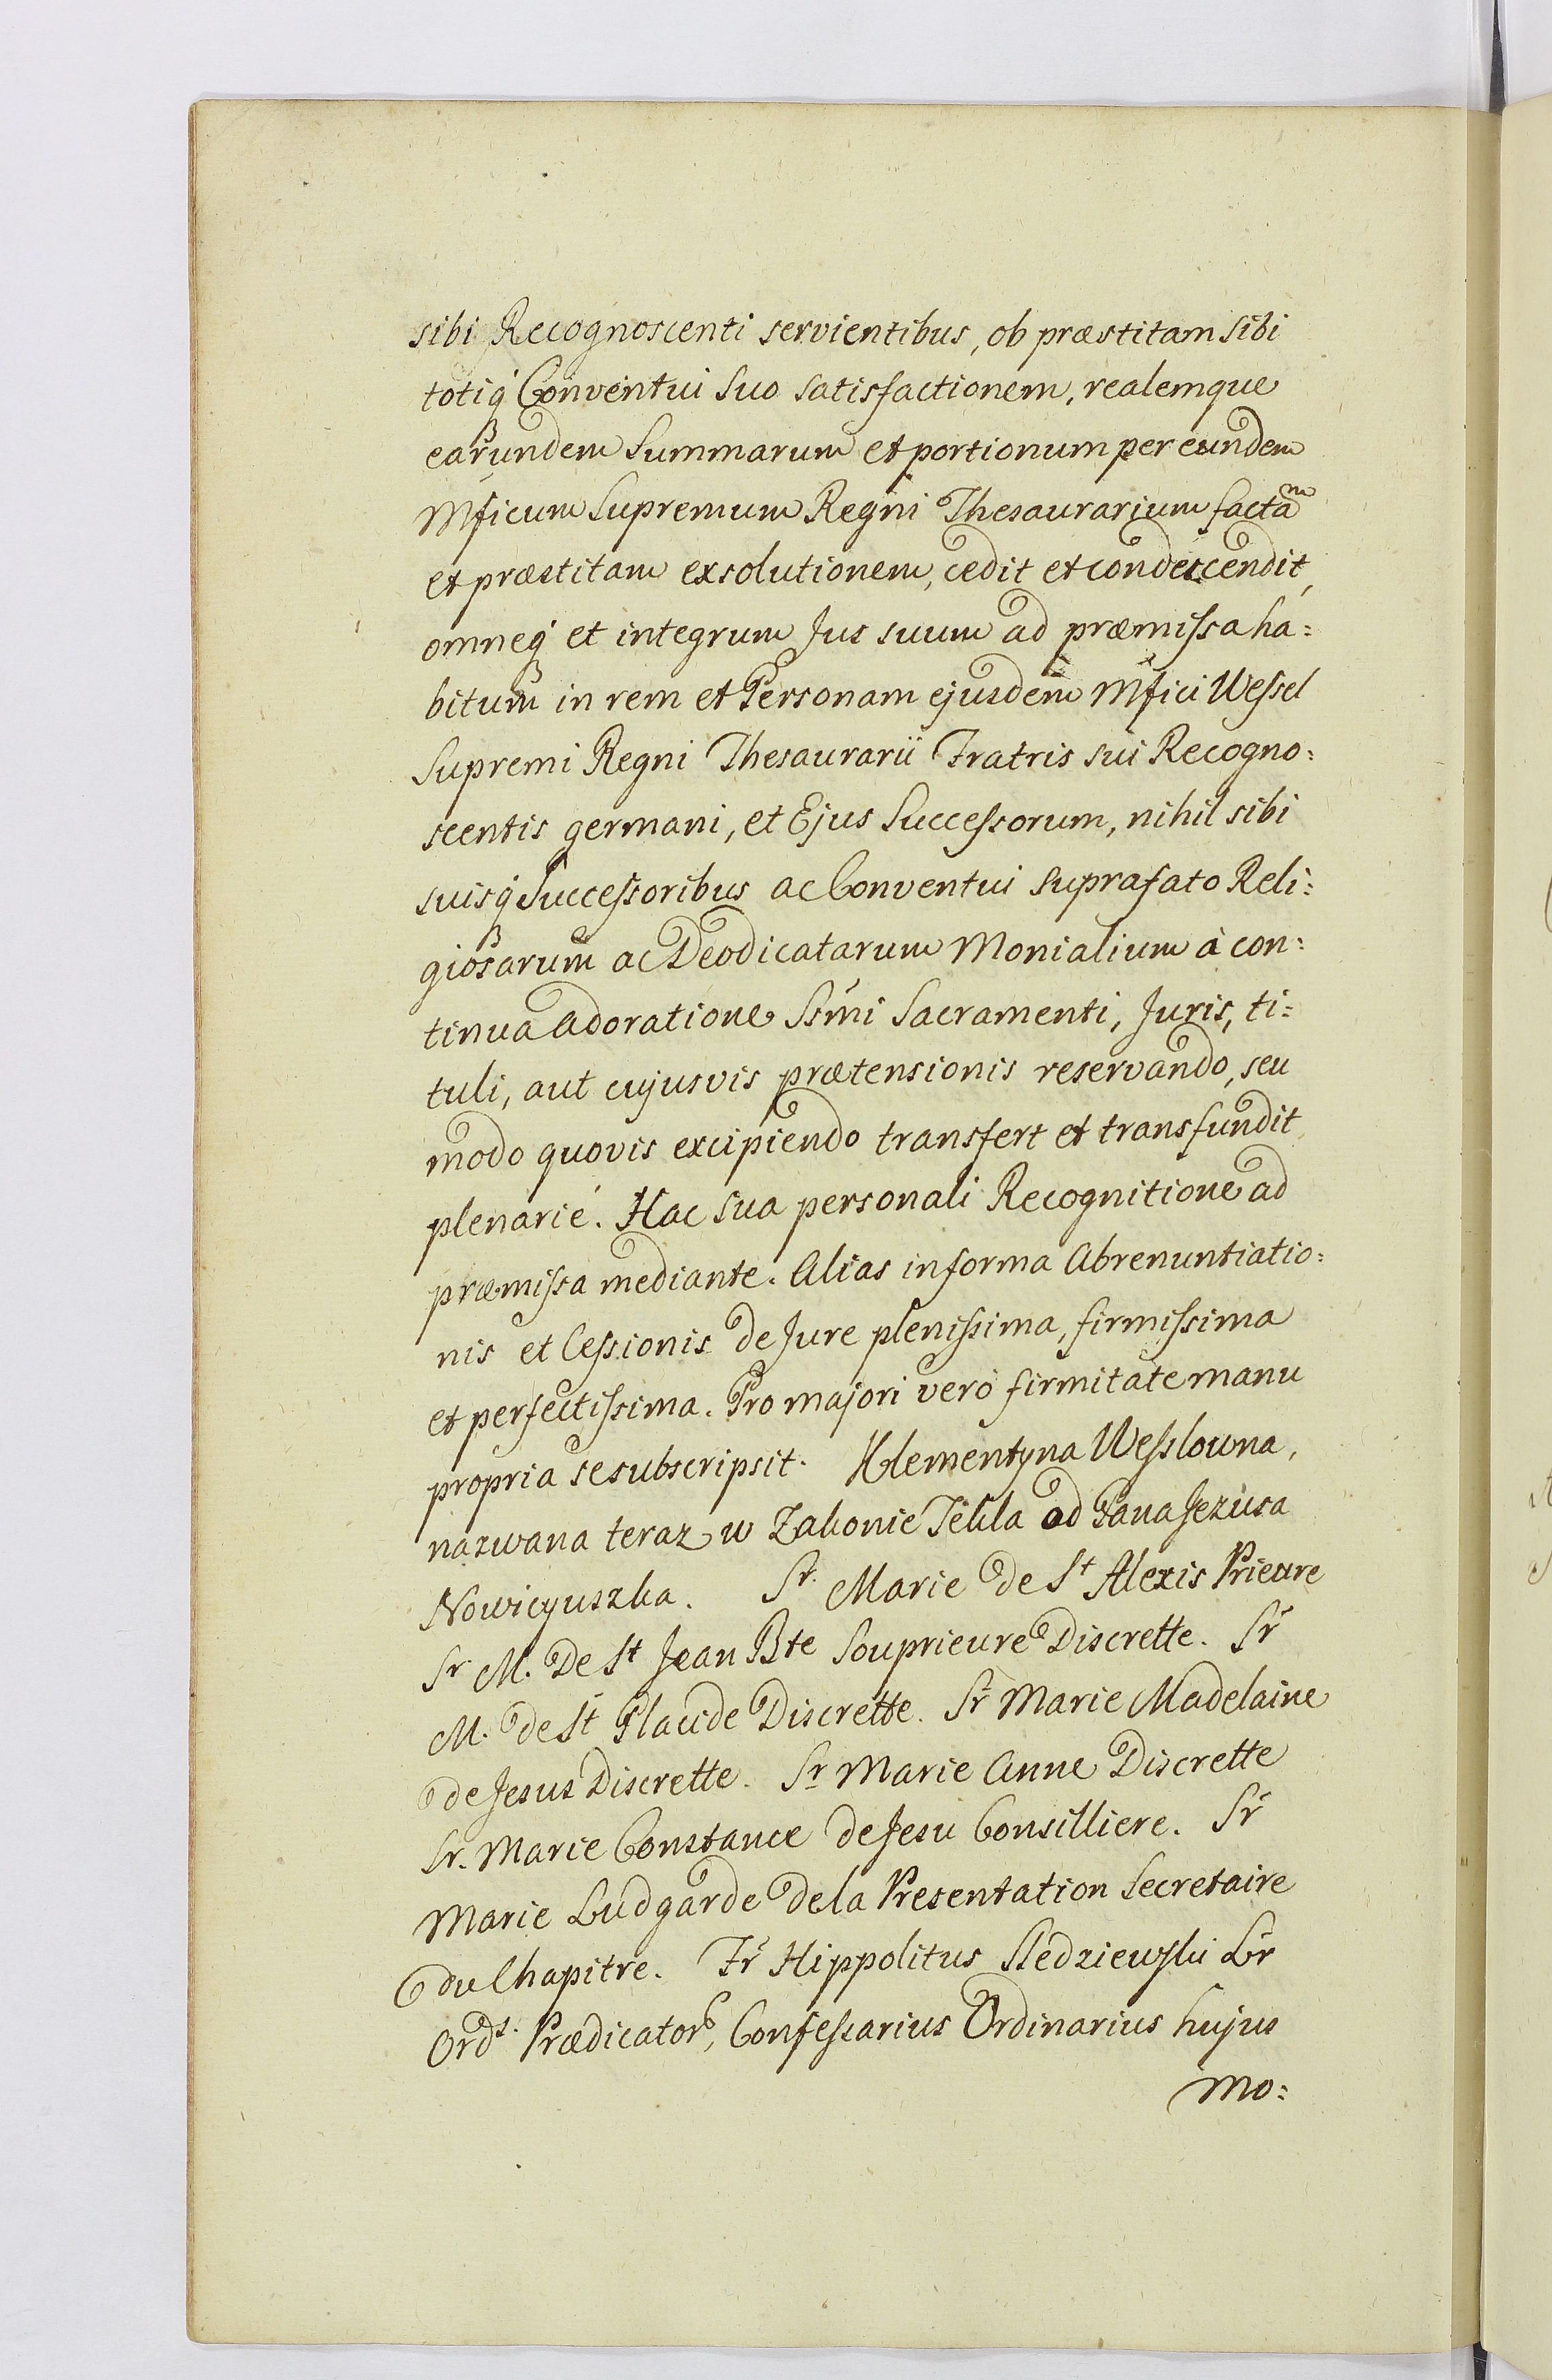 sibi Recognoscenti servientibus, ob præstitam sibi
totiq́ Conventui suo satisfactionem, realemque
earundem Summarum et portionum per eundem
Mficum Supremum Regni Thesaurarium factam
et præstitam exsolutionem, cedit et condescendit,
omneq́ et integrum Jus suum ad præmissa ha=
bitum in rem et Personam ejusdem Mfici Wessel
Supremi Regni Thesaurarii Fratris sui Recogno=
scentis germani, et Ejus Successorum, nihil sibi
suisq́ Successoribus ac Conventui suprafato Reli=
giosarum ac Deodicatarum Monialium à con=
tinua Adoratione Ssmi Sacramenti, Juris, ti=
tuli, aut cujusvis prætensionis reservando, seu
modo quovis excipiendo transfert et transfundit
plenarié. Hac sua personali Recognitione ad
præmissa mediante. Alias in forma Abrenuntiatio=
nis et Cessionis de Jure plenissima, firmissima
et perfectissima. Pro majori veró firmitate manu
propria se subscripsit. Klementyna Wesslowna,
nazwana teraz w Zakonie Tekla od Pana Jezusa
Nowicyuszka. Sr Marie de St Alexis Prieure
Sr M. De St Jean Bte Souprieure Discrette. Sr
M. de St Placide Discrette. Sr Marie Madelaine
de Jesus Discrette. Sr Marie Anne Discrette
Sr. Marie Constance de Jesu Consilliere. Sr
Marie Ludgarde de la Presentation Secretaire
du Chapitre. Fr Hippolitus Sledziewski Lr
Ords. Prædicator, Confessarius Ordinarius hujus
Mo=